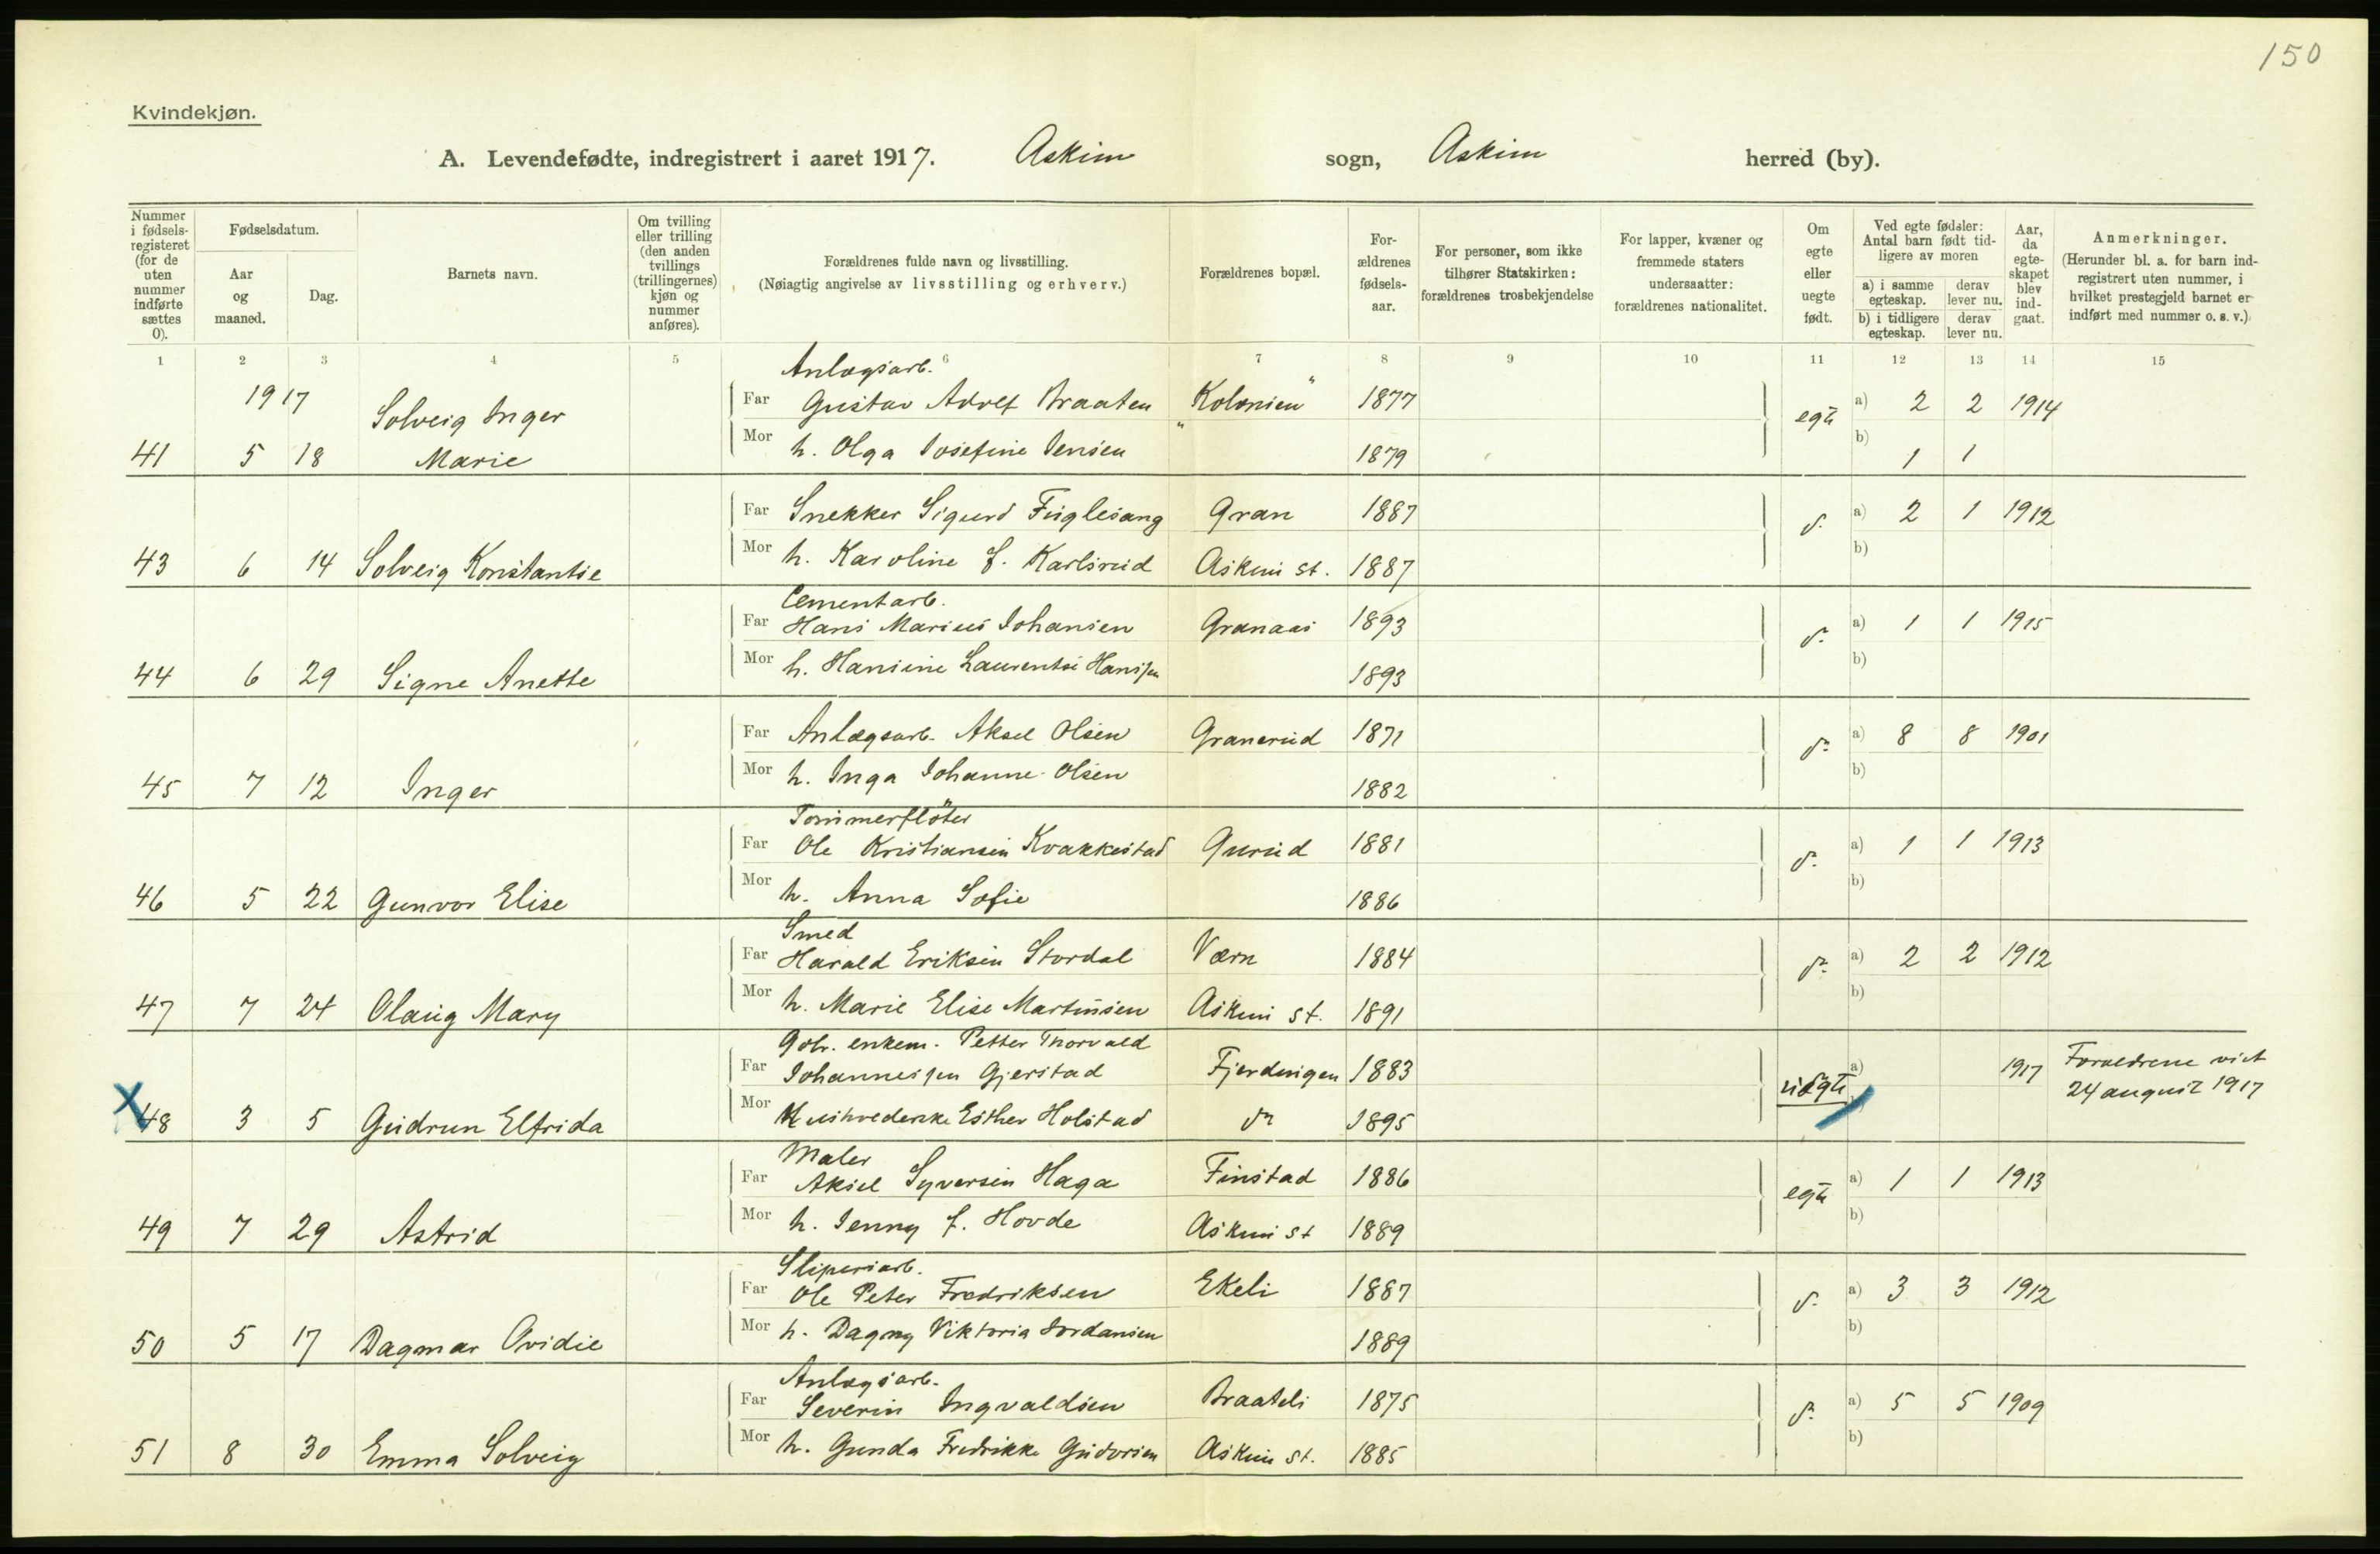 150
Kvindekjøn.
A. Levendefødte, indregistrert i aaret 1917. Askim sogn, Askim herred (by).
Nummer i fødsels-registeret (for de uten nummer indførte sættes 0).
Fødselsdatum.
Aar og maaned.
Dag.
Barnets navn.
Om tvilling eller trilling (den anden tvillings (trillingernes) kjøn og nummer anføres).
Forældrenes fulde navn og livsstilling.
(Nøiagtig angivelse av livsstilling og erhverv.)
Forældrenes bopæl.
For-ældrenes fødsels-aar.
For personer, som ikke tilhører Statskirken: forældrenes trosbekjendelse
For lapper, kvæner og fremmede staters undersaatter: forældrenes nationalitet.
Om egte eller uegte født.
Ved egte fødsler: Antal barn født tid-ligere av moren
a) i samme egteskap. derav lever nu.
b) i tidligere egteskap. derav lever nu.
Aar, da egte-skapet blev ind-gaat.
Anmerkninger.
(Herunder bl. a. for barn ind-registrert uten nummer, i hvilket prestegjeld barnet er indført med nummer o. s. v.)
1 2 3 4 5 6 7 8 9 10 11 12 13 14 15
Anlægsarb.
1917 Solveig Inger Far Gustav Adolf Braaten "Kolonien" 1877 egte a) 2 2 1914
41 5 18 Marie Mor h. Olga Josefine Jensen 1879 b) 1 1
Far Snekker Sigurd Fuglesang Gran 1887 do a) 2 1 1912
43 6 14 Solveig Konstantse Mor h. Karoline f. Karlsrud Askim st. 1887 b)
Cementarb.
Far Hans Marius Johansen Granaas 1893 do a) 1 1 1915
44 6 29 Signe Anette Mor h. Hansine Laurentse Hanssen 1893 b)
Far Anlægsarb. Aksel Olsen Granerud 1871 do a) 8 8 1901
45 7 12 Inger Mor h. Inga Johanne Olsen 1882 b)
Tømmerfløter
Far Ole Kristiansen Kvakkestad Gurud 1881 do a) 1 1 1913
46 5 22 Gunvor Elise Mor h. Anna Sofie 1886 b)
Smed
Far Harald Eriksen Stordal Værn 1884 do a) 2 2 1912
47 7 24 Olaug Mary Mor h. Marie Elise Martinsen Askim st. 1891 b)
Gbr. enkem. Petter Thorvald
Far Johannessen Gjerstad Fjerdingen 1883 uegte a) 1917 Forældrene viet
X 48 3 5 Gudrun Elfrida Mor Husholderske Esther Holstad do 1895 24 august 1917
Maler
Far Aksel Syversen Haga Finstad 1886 egte a) 1 1 1913
49 7 29 Astrid Mor h. Jenny f. Hovde Askim st 1889 b)
Sliperiarb.
Far Ole Peter Fredriksen Ekeli 1887 do a) 3 3 1912
50 5 17 Dagmar Ovidie Mor h. Dagny Viktoria Jordansen 1889 b)
Anlægsarb.
Far Severin Ingvaldsen Braateli 1875 do a) 5 5 1909
51 8 30 Emma Solveig Mor h. Gunda Fredrikke Gudorsen Askim st. 1885 b)